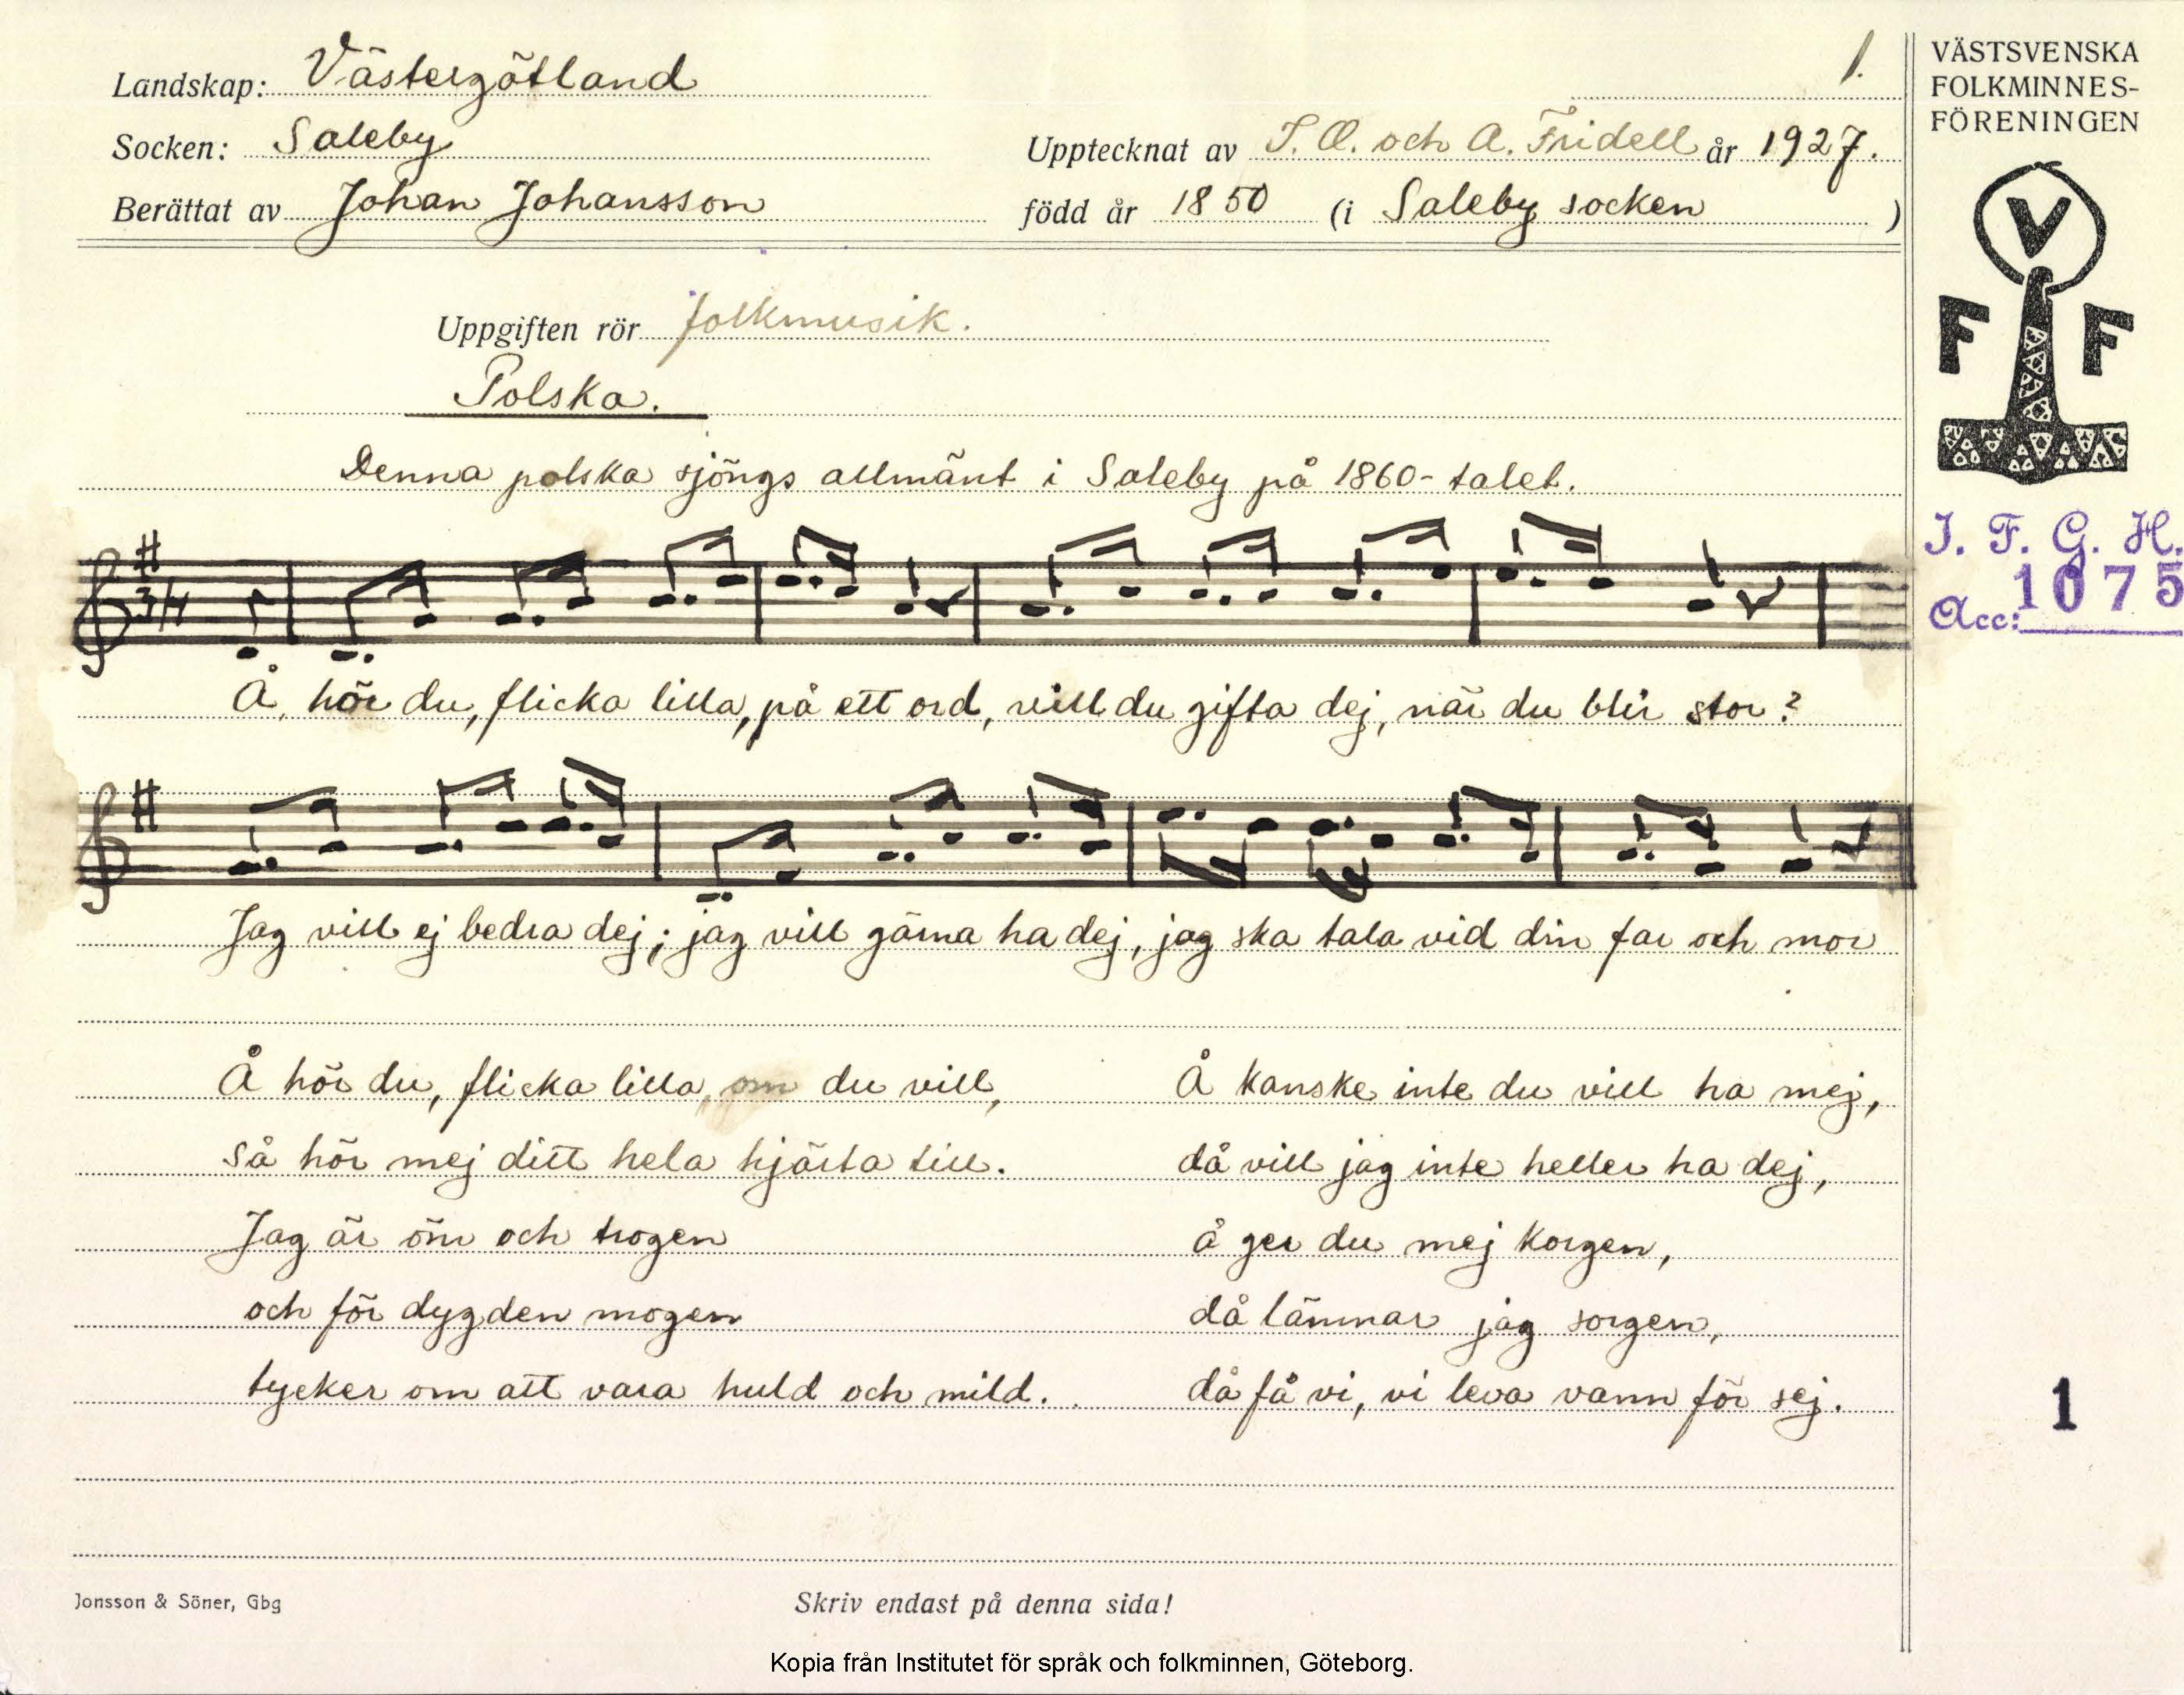 Landskap: Västergötland
1.
VÄSTSVENSKA
FOLKMINNES-
FÖRENINGEN
Socken: Saleby
Upptecknat av T. O. och A. Fridell år 1927.
Berättat av Johan Johansson
född år 1850 (i Saleby socken)
V
F F
Uppgiften rör folkmusik.
Polska.
Denna polska sjöngs allmänt i Saleby på 1860-talet.
I. F. G. H.
Acc: 1075
3/4
Å, hör du, flicka lilla, på ett ord, vill du gifta dej, när du blir stor?
Jag vill ej bedra dej; jag vill gärna ha dej, jag ska tala vid din far och mor
Å hör du, flicka lilla, om du vill,
så hör mej ditt hela hjärta till.
Jag är öm och trogen
och för dygden mogen
tycker om att vara huld och mild.
Å kanske inte du vill ha mej,
då vill jag inte heller ha dej,
å ger du mej korgen,
då lämnar jag sorgen,
då få vi, vi leva vann för sej.
1
Jonsson & Söner, Gbg
Skriv endast på denna sida!
Kopia från Institutet för språk och folkminnen, Göteborg.